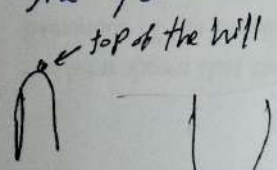 top of the hill